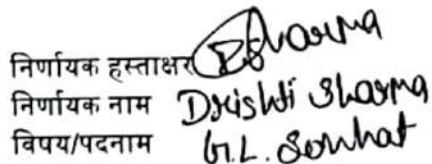 निर्णायक हस्ताक्षर DSharma
निर्णायक नाम Drishti Sharma
विषय/पदनाम G.L. Sonhat